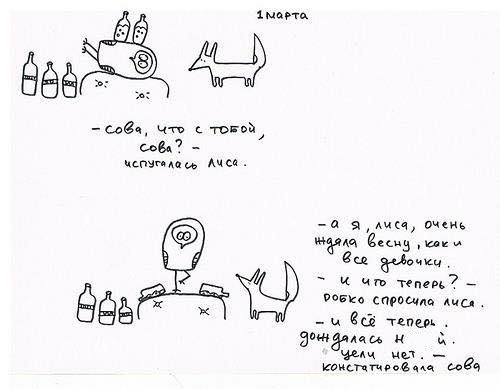 1 марта
- сова, что с тобой,
сова? -
испугалась лиса.
- а я, лиса, очень
ждала весну, как и
все девочки.
- и что теперь? -
робко спросила лиса.
- и всё теперь.
дождалась н й.
цели нет. -
констатировала сова